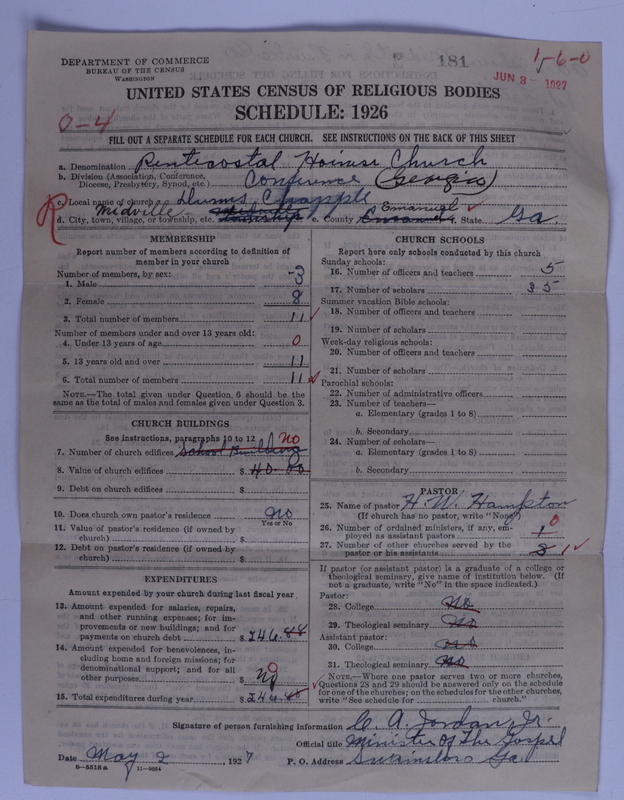 DEPARTMENT OF COMMERCE
BUREAU OF THE CENSUS
WASHINGTON
181
1-6-0
JUN 3- 1927
UNITED STATES CENSUS OF RELIGIOUS BODIES
SCHEDULE: 1926
0-4
FILL OUT A SEPARATE SCHEDULE FOR EACH CHURCH. SEE INSTRUCTIONS ON THE BACK OF THIS SHEET
a. Denomination Pentecostal Holiness Church
b. Division (Association, Conference, Diocese, Presbytery, Synod, etc.) Conference (Georgia)
c. Local name of church Chappll
R
d. City, town, village, or township, etc. Midville e. County Emanuel f. State Ga.
MEMBERSHIP
Report number of members according to definition of member in your church
Number of members, by sex:
1. Male 3
2. Female 8
3. Total number of members 11
Number of members under and over 13 years old:
4. Under 13 years of age 0
5. 13 years old and over 11
6. Total number of members 11
NOTE.—The total given under Question 6 should be the same as the total of males and females given under Question 3.
CHURCH BUILDINGS
See instructions, paragraphs 10 to 12 no
7. Number of church edifices School Building
8. Value of church edifices $ 40.00
9. Debt on church edifices $
10. Does church own pastor's residence no
Yes or No
11. Value of pastor's residence (if owned by church) $
12. Debt on pastor's residence (if owned by church) $
EXPENDITURES
Amount expended by your church during last fiscal year
13. Amount expended for salaries, repairs, and other running expenses; for improvements or new buildings; and for payments on church debt $ 246.88
14. Amount expended for benevolences, including home and foreign missions; for denominational support; and for all other purposes $ no 0
15. Total expenditures during year $ 246.88
CHURCH SCHOOLS
Report here only schools conducted by this church
Sunday schools:
16. Number of officers and teachers 5
17. Number of scholars 35
Summer vacation Bible schools:
18. Number of officers and teachers
19. Number of scholars
Week-day religious schools:
20. Number of officers and teachers
21. Number of scholars
Parochial schools:
22. Number of administrative officers
23. Number of teachers—
a. Elementary (grades 1 to 8)
b. Secondary
24. Number of scholars—
a. Elementary (grades 1 to 8)
b. Secondary
PASTOR
25. Name of pastor H. W. Hampton
(If church has no pastor, write "None")
26. Number of ordained ministers, if any, employed as assistant pastors 1 0
27. Number of other churches served by the pastor or his assistants 3 1
If pastor (or assistant pastor) is a graduate of a college or theological seminary, give name of institution below. (If not a graduate, write "No" in the space indicated.)
Pastor:
28. College No
29. Theological seminary No
Assistant pastor:
30. College no
31. Theological seminary No
NOTE.—Where one pastor serves two or more churches, Questions 28 and 29 should be answered only on the schedule for one of the churches; on the schedules for the other churches, write "See schedule for church."
Signature of person furnishing information C. A. Jordan, Jr.
Official title Minister of The Gospel
Date May 2, 1927 P. O. Address Swainsboro Ga.
6—5518 a 11—9084